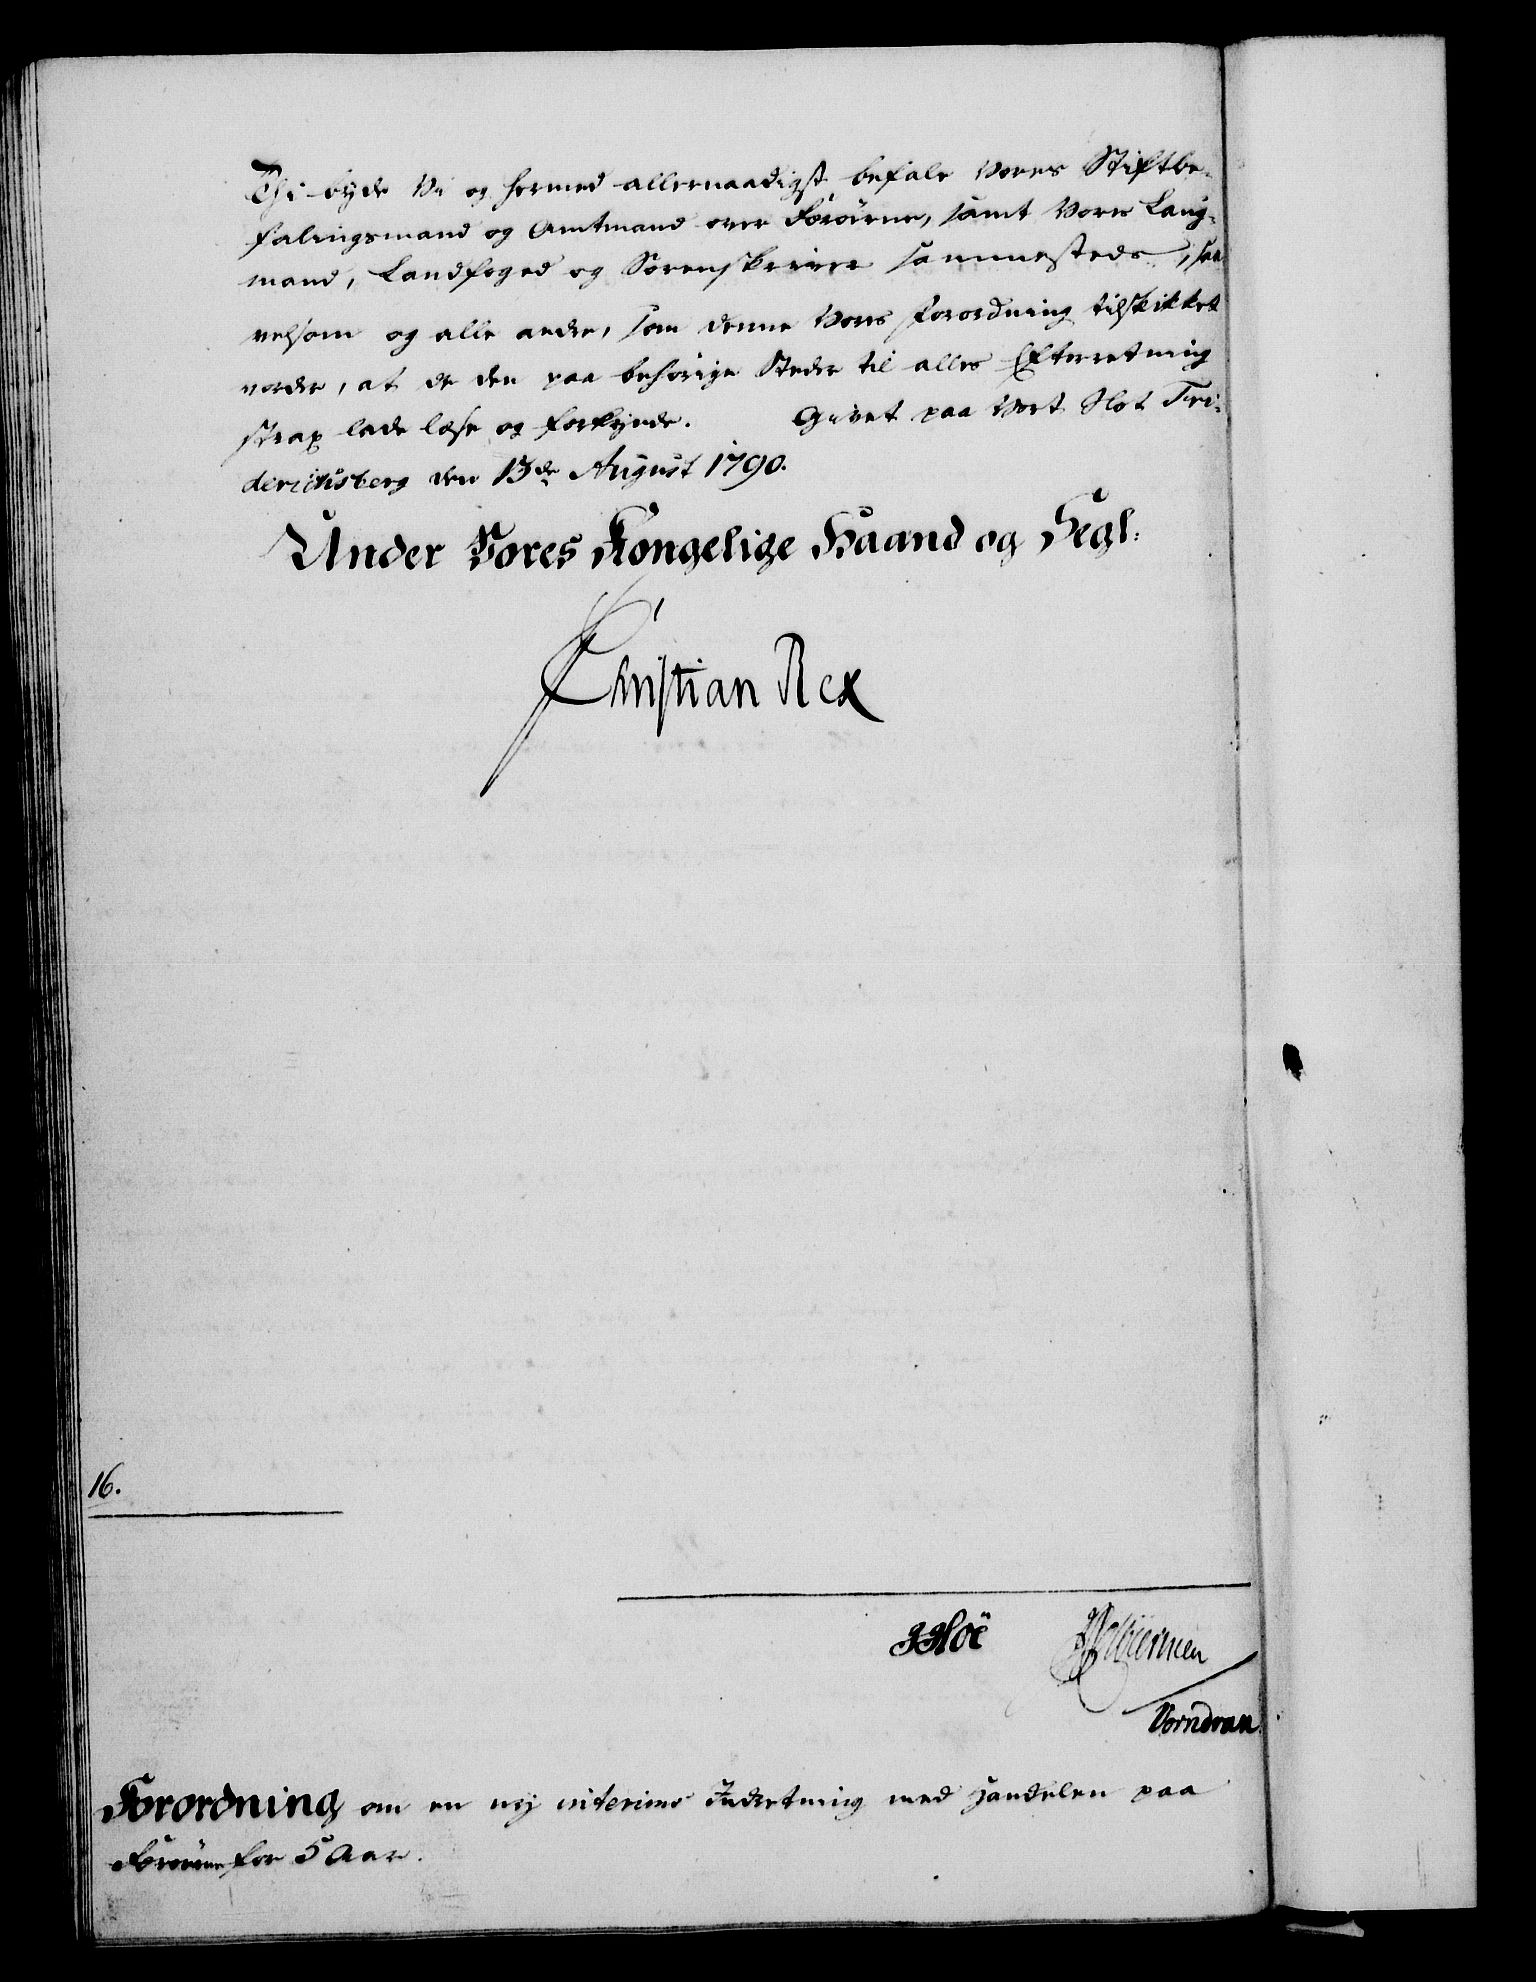 Thi byde Vi og hermed allernaadigst befale Vores Stiftbe-
falingsmand og Amtmand over Færöerne, samt Vores Laug-
mand, Landfoged og Sorenskriver sammesteds, saa
velsom og alle andre, som denne Vores Forordning tilskikket
vorder, at de den paa behörige Steder til alles Efterretning
strax lade læse og forkynde. Givet paa Vort Slot Fri-
derichsberg den 13de August 1790.
Under Vores Kongelige Haand og Segl:
Christian Rex
16.
Höe
Vorndran
Forordning om en nÿ interims Indretning med Handelen paa
Færöerne for 5 Aar.